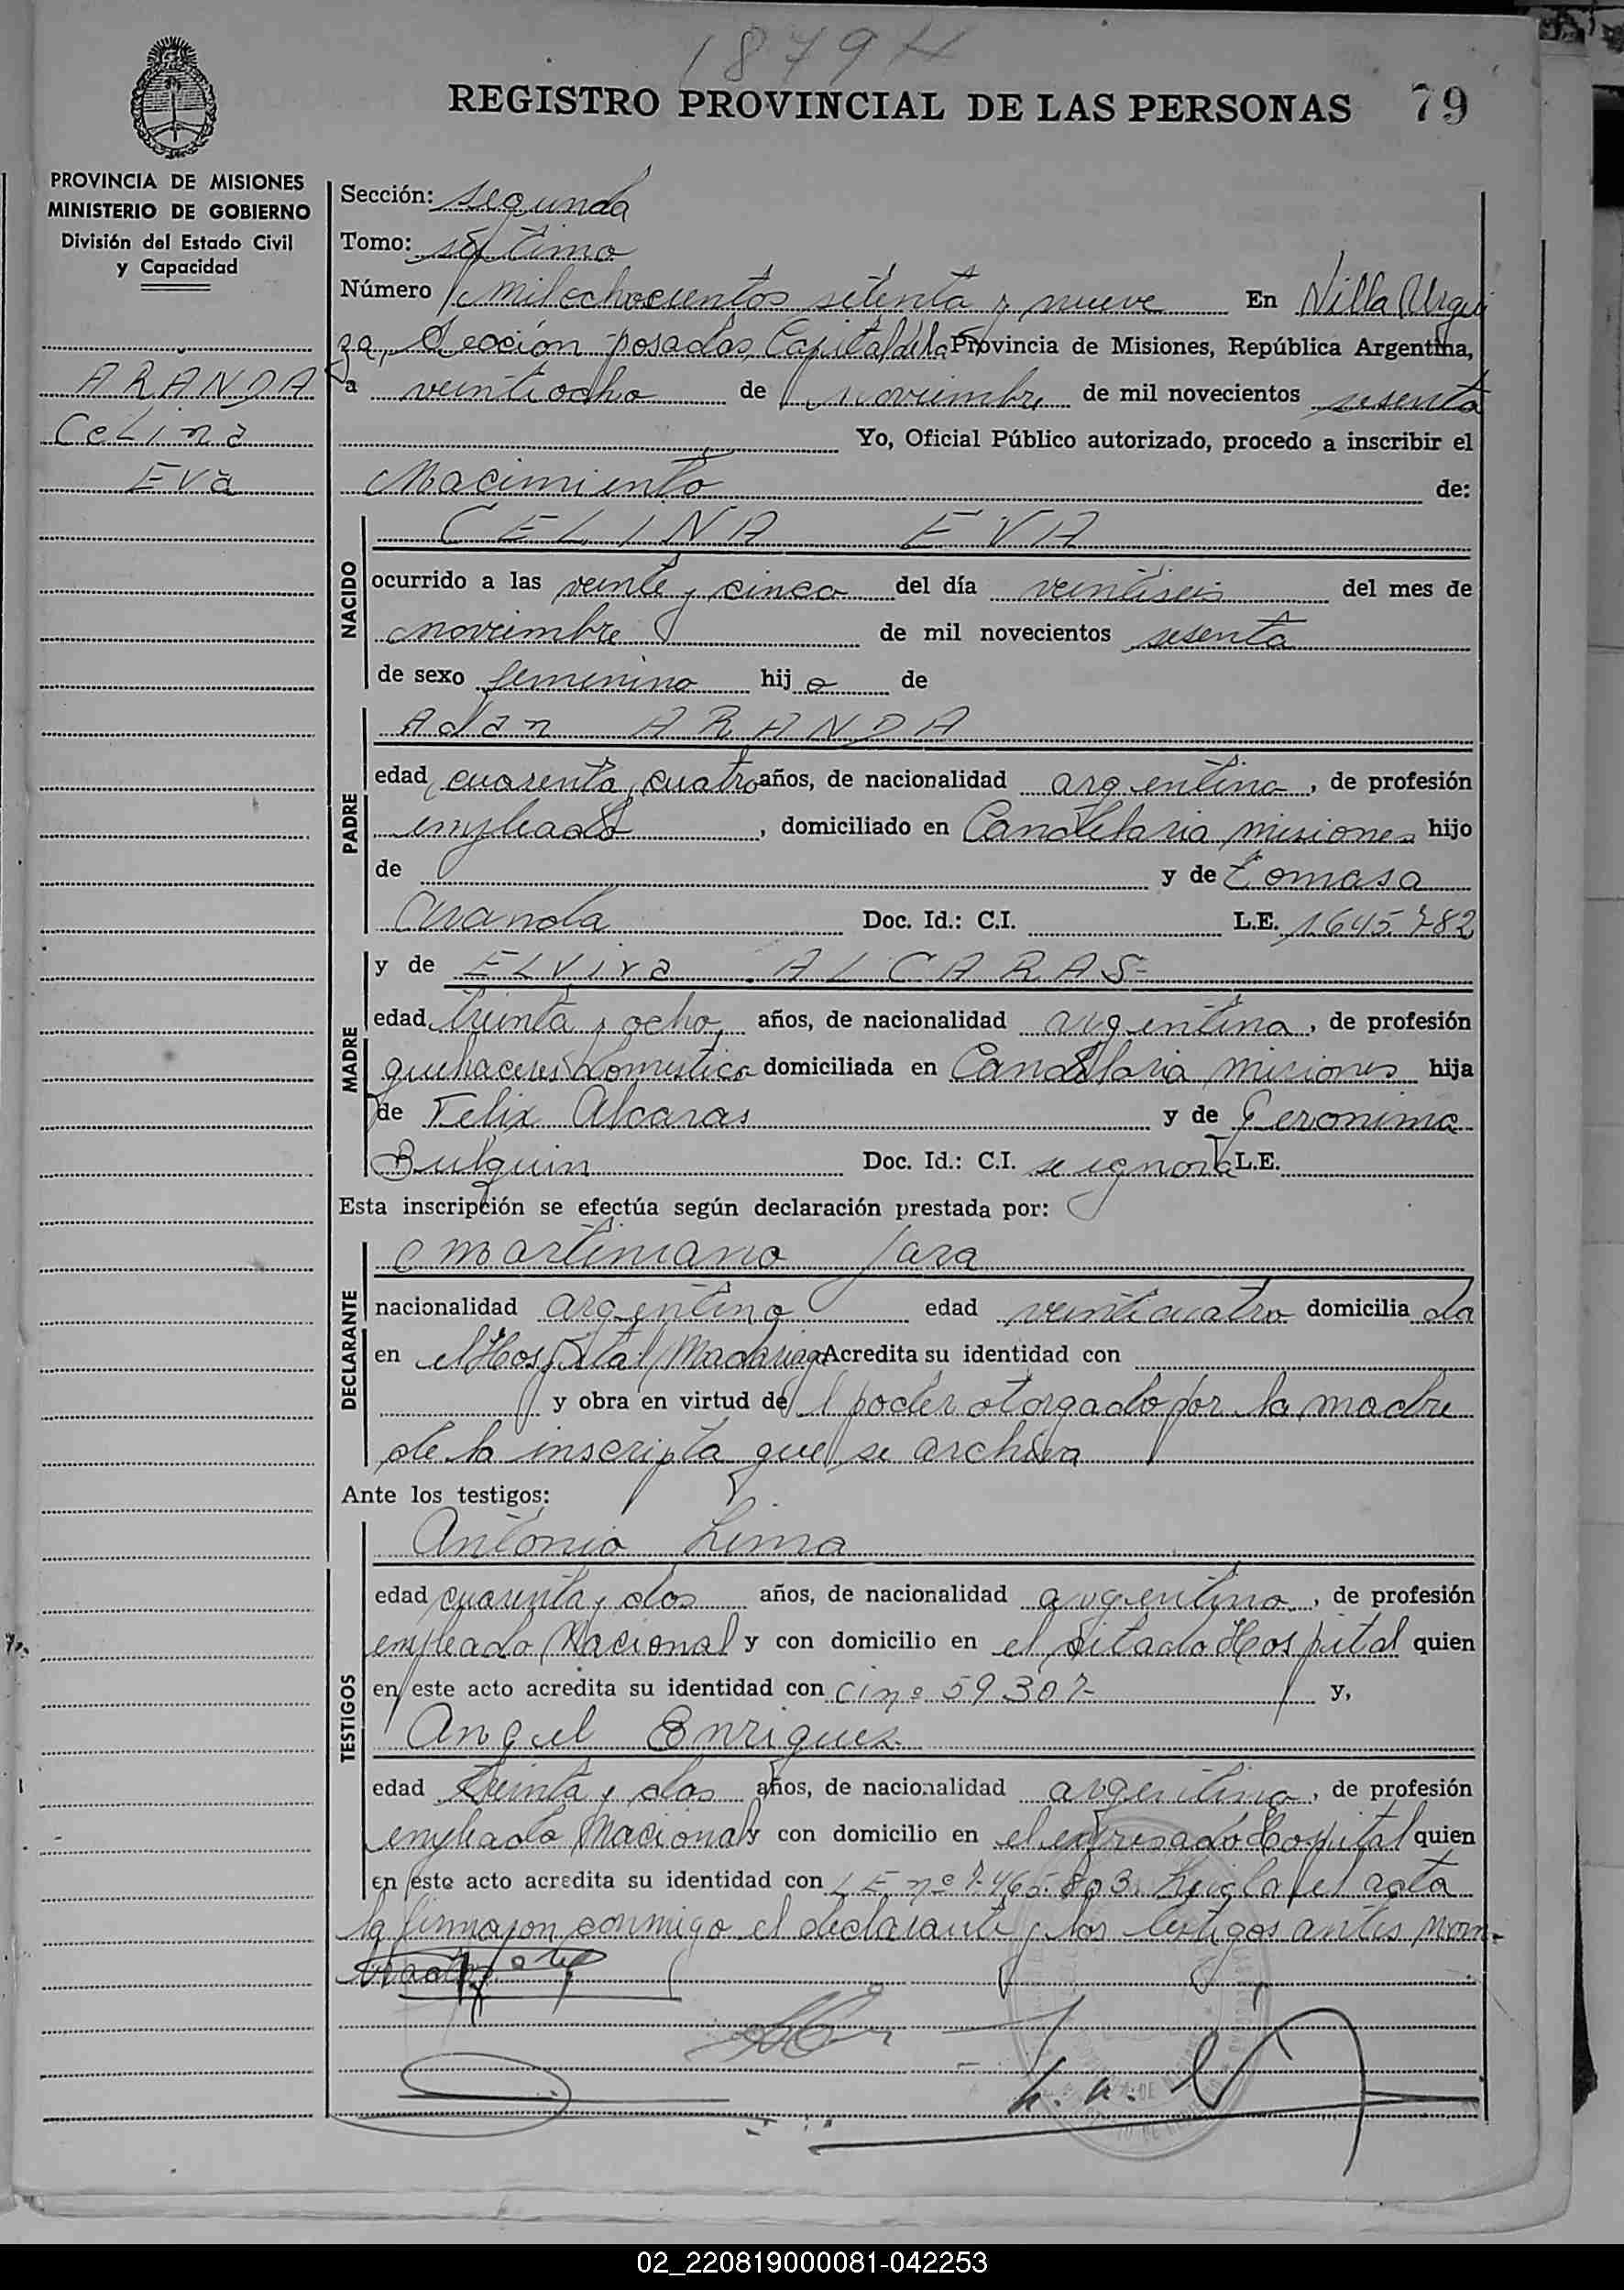 1879 H
REGISTRO PROVINCIAL DE LAS PERSONAS 79
PROVINCIA DE MISIONES
MINISTERIO DE GOBIERNO
División del Estado Civil
y Capacidad
ARANDA
Celina
Eva
Sección: segunda
Tomo: séptimo
Número mil ochocientos setenta y nueve En Villa Urqui
za, Sección posadas, Capital de la Provincia de Misiones, República Argentina,
a veintiocho de noviembre de mil novecientos sesenta
Yo, Oficial Público autorizado, procedo a inscribir el
Nacimiento de:
NACIDO
CELINA EVA
ocurrido a las veinte y cinco del día veintiseis del mes de
noviembre de mil novecientos sesenta
de sexo femenino hij a de
PADRE
Adan ARANDA
edad cuarenta y cuatro años, de nacionalidad argentina, de profesión
empleado, domiciliado en Candelaria misiones hijo
de y de tomasa
Aranda Doc. Id.: C.I. L.E. 1.645.782
MADRE
y de ELvira ALCARAS-
edad treinta y ocho, años, de nacionalidad argentina, de profesión
quehaceres domestico domiciliada en Candelaria misiones hija
de Felix Alcaras y de Geronima
Bulquin Doc. Id.: C.I. se ignora L.E.
Esta inscripción se efectúa según declaración prestada por:
DECLARANTE
martiniano Jara
nacionalidad argentino edad veinticuatro domicilia do
en el Hospital Madariaga Acredita su identidad con
y obra en virtud de l poder otorgado por la madre
de la inscripta que se archiva
Ante los testigos:
TESTIGOS
Antonio Lima
edad cuarenta y dos años, de nacionalidad argentino, de profesión
empleado Nacional y con domicilio en el sitado Hospital quien
en este acto acredita su identidad con ci nº 59.307- y,
Angel Enriquez-
edad treinta y dos años, de nacionalidad argentino, de profesión
empleado Nacional y con domicilio en el expresado Hospital quien
en este acto acredita su identidad con LE nº 7.465.803. Leida el acta
la firmaron conmigo el declarante y los testigos antes nom-
brados
02_220819000081-042253